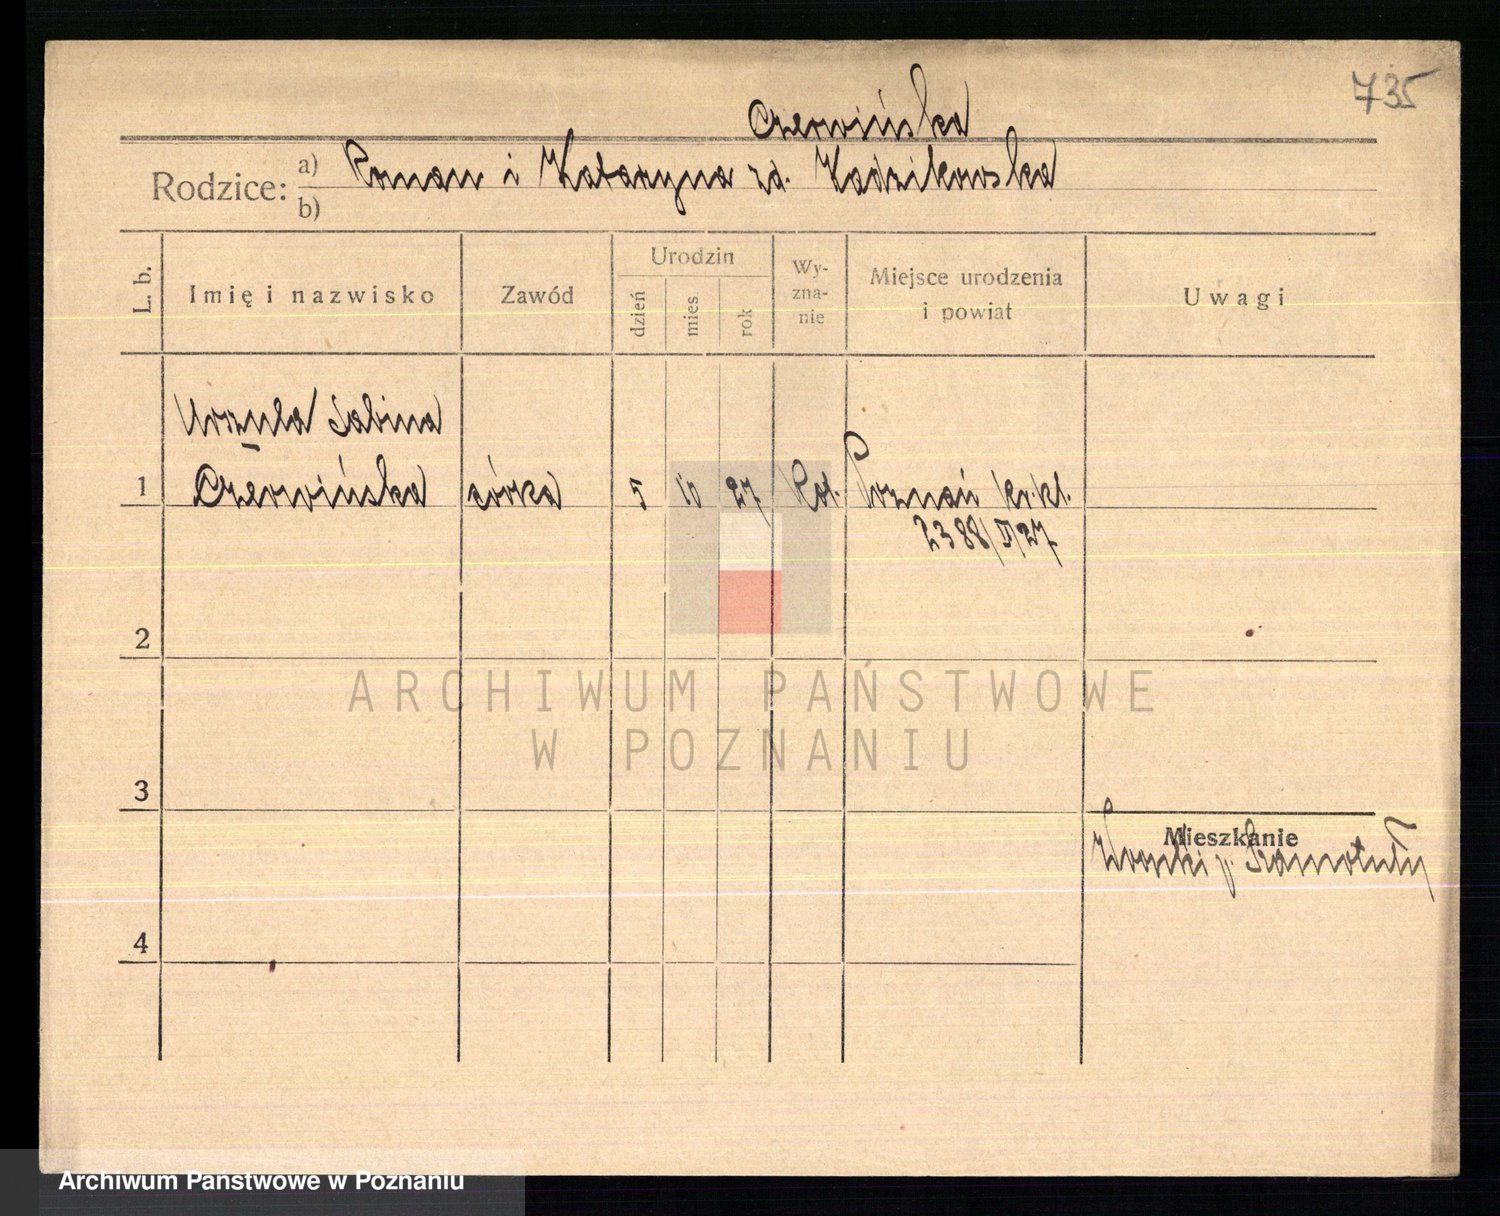 735
Czerwińska
Rodzice: a) Roman i Katarzyna zd. Kadzikowska
b)
L. b.
Imię i nazwisko
Zawód
Urodzin
dzień
mies
rok
Wy-
zna-
nie
Miejsce urodzenia
i powiat
Uwagi
Urszula Sabina
1 Czerwińska córka 5 10 27 Kat. Poznań kr.kl.
2388/IV/27
2
ARCHIWUM PAŃSTWOWE
W POZNANIU
3
Mieszkanie
p. Szamotuły
4
Archiwum Państwowe w Poznaniu